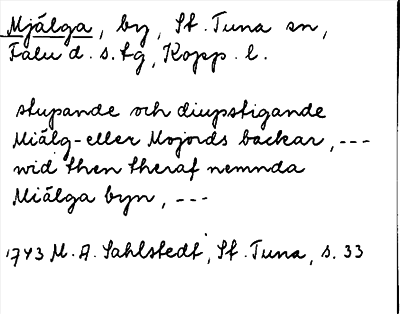 Mjälga, by, St. Tuna sn,
Falu d. s. tg, Kopp. l.
stupande och diupstigande
Miälg- eller Mojords backar, ---
wid then theraf nemnda
Miälga byn, ---
1743 M. A. Sahlstedt, St. Tuna, s. 33